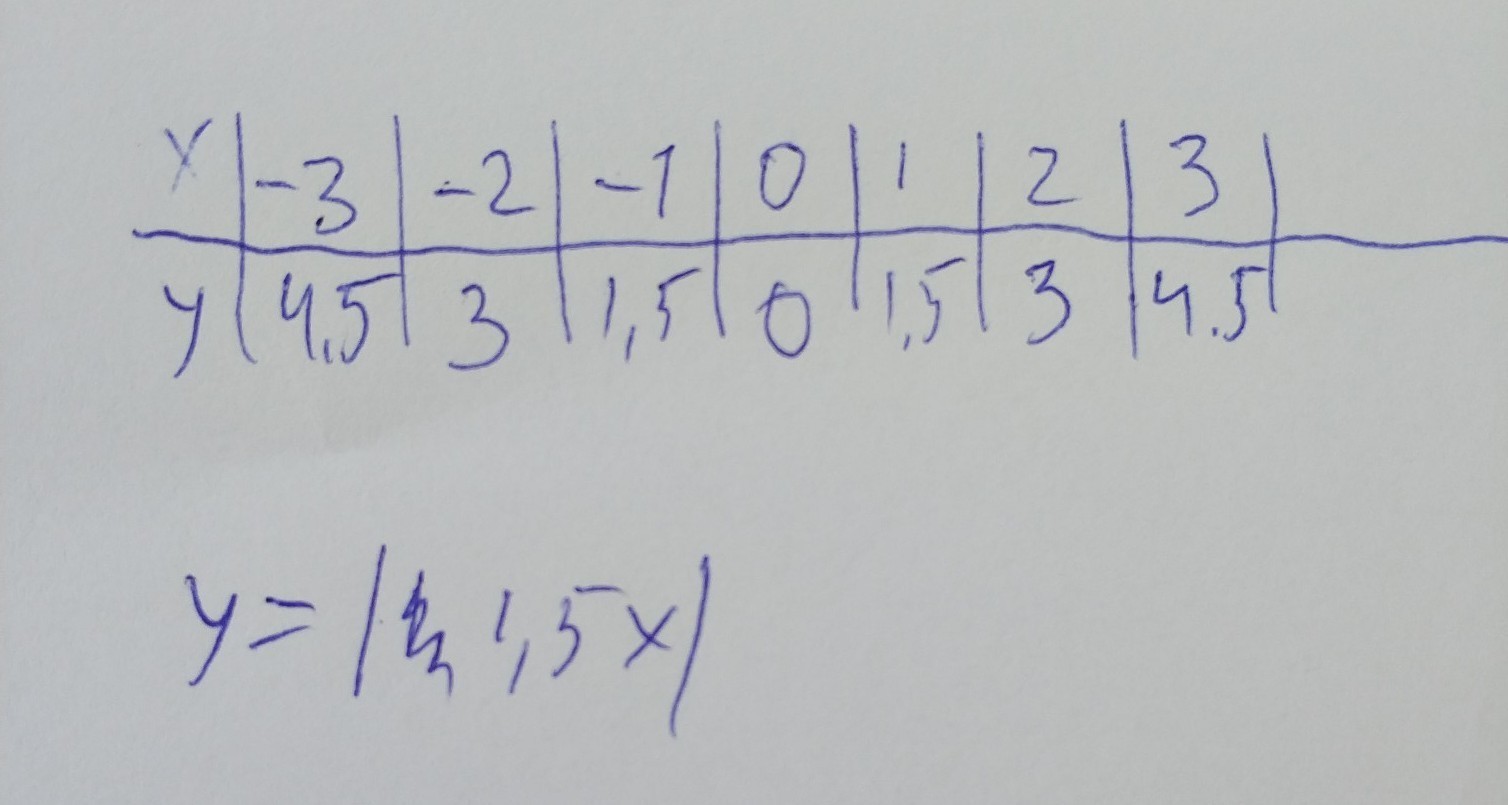 x | -3 | -2 | -1 | 0 | 1 | 2 | 3 |
y | 4,5 | 3 | 1,5 | 0 | 1,5 | 3 | 4.5 |
y = | 1,5x|